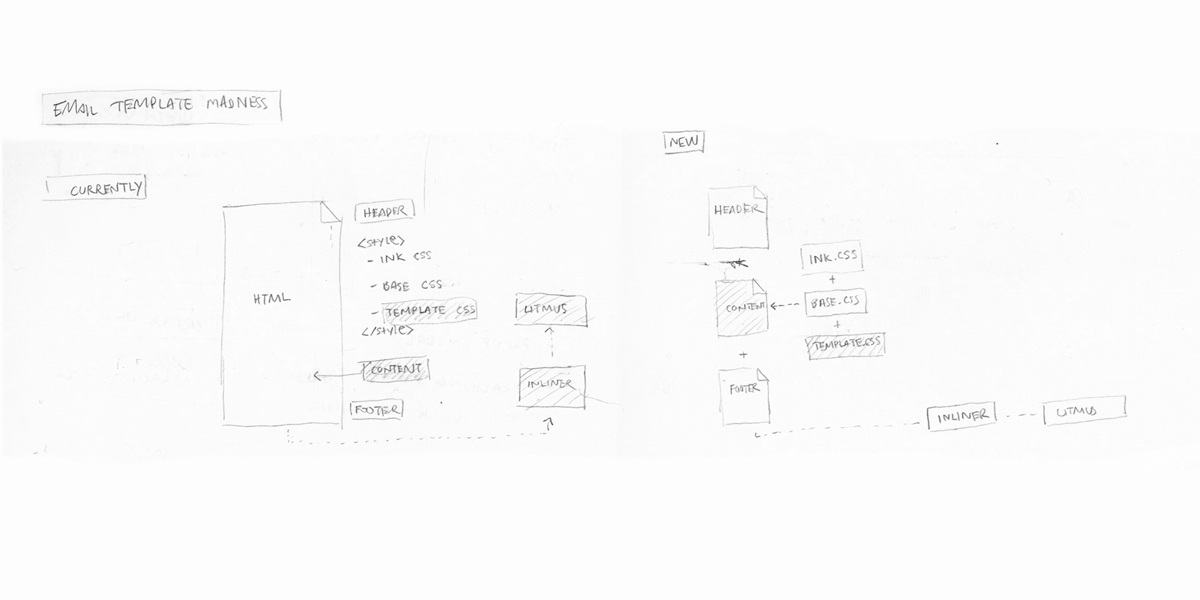 EMAIL TEMPLATE MADNESS
CURRENTLY
HTML
HEADER
<style>
- INK CSS
- BASE CSS
- TEMPLATE CSS
</style>
CONTENT
FOOTER
LITMUS
INLINER
NEW
HEADER
CONTENT
+
FOOTER
INK.CSS
+
BASE.CSS
+
TEMPLATE.CSS
INLINER
LITMUS